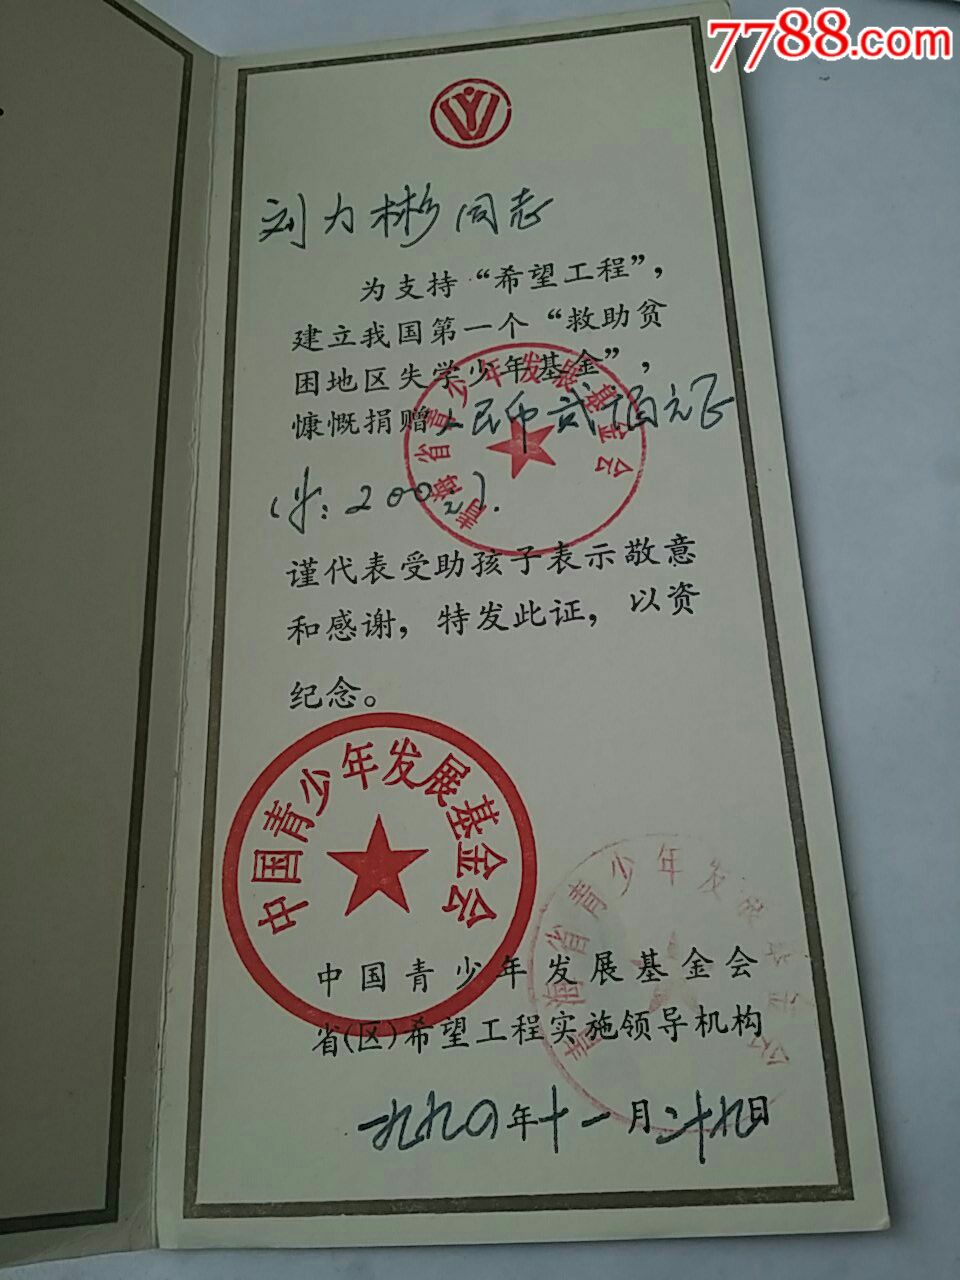 7788.com
刘力彬同志
为支持“希望工程”，
建立我国第一个“救助贫
困地区失学少年基金”，
慷慨捐赠人民币贰佰元正
(¥: 200元).
青海省青少年发展基金会
谨代表受助孩子表示敬意
和感谢，特发此证，以资
纪念。
中国青少年发展基金会
青海省青少年发展基金会
中国青少年发展基金会
省(区)希望工程实施领导机构
一九九四年十一月二十九日